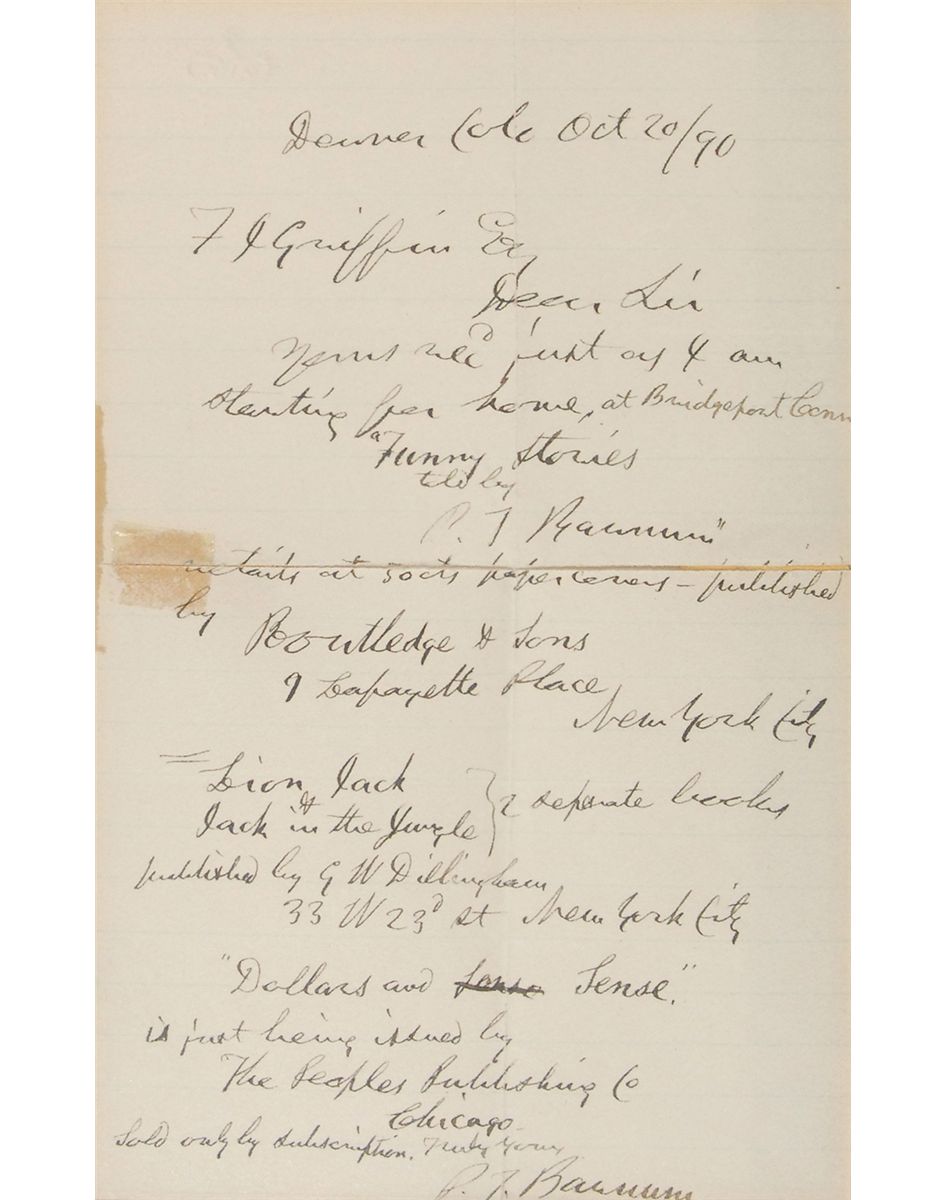 Denver Colo Oct 20/90
F J Griffin Esq
Dear Sir
Yours recd just as I am
starting for home, at Bridgeport Conn
"Funny Stories
told by
P. T Barnum"
retails at 50cts paper covers – published
by
Routledge & Sons
9 Lafayette Place
New York City
Lion Jack
&
Jack in the Jungle } 2 separate books
published by G W Dillingham
33 W 23d st New York City
"Dollars and Sense Sense."
is just being issued by
The Peoples Publishing Co
Chicago
Sold only by subscription. Truly Yours
P. T. Barnum